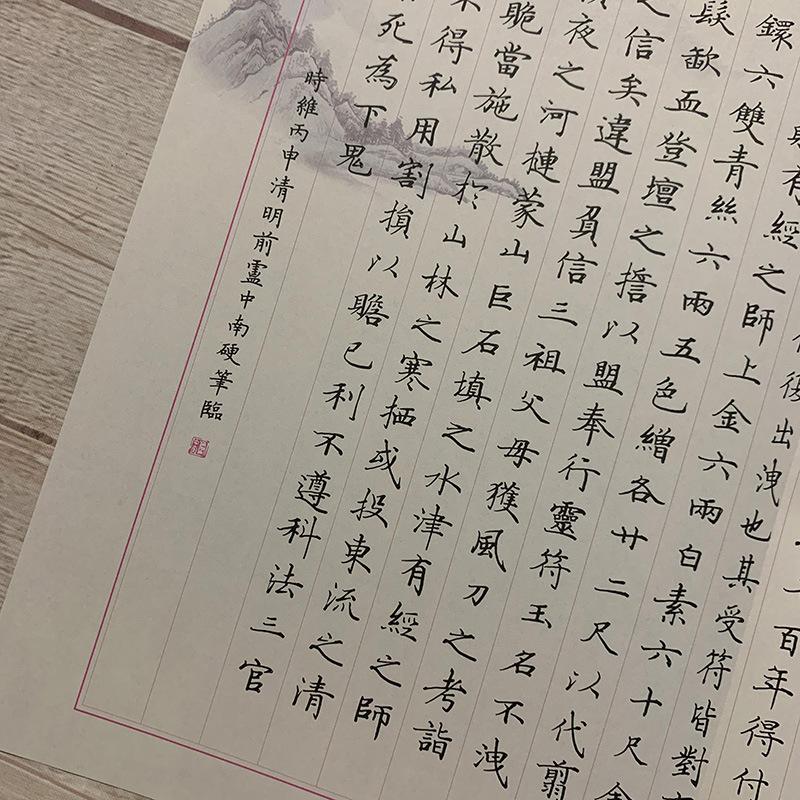 百年得付
後出洩也其受符皆對
有經之師上金六兩白素六十尺金
鐶六雙青絲六兩五色繒各廿二尺以代翦
髮歃血登壇之誓以盟奉行靈符玉名不洩
之信矣違盟負信三祖父母獲風刀之考詣
夜之河槤蒙山巨石填之水津有經之師
䞈當施散於山林之寒栖或投東流之清
不得私用割損以贍己利不遵科法三官
死為下鬼
時維丙申清明前盧中南硬筆臨